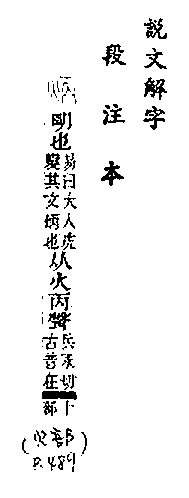 說文解字
段注本
明也易曰大人虎變其文炳也从火丙聲兵永切古音在十部
(火部
P.489)